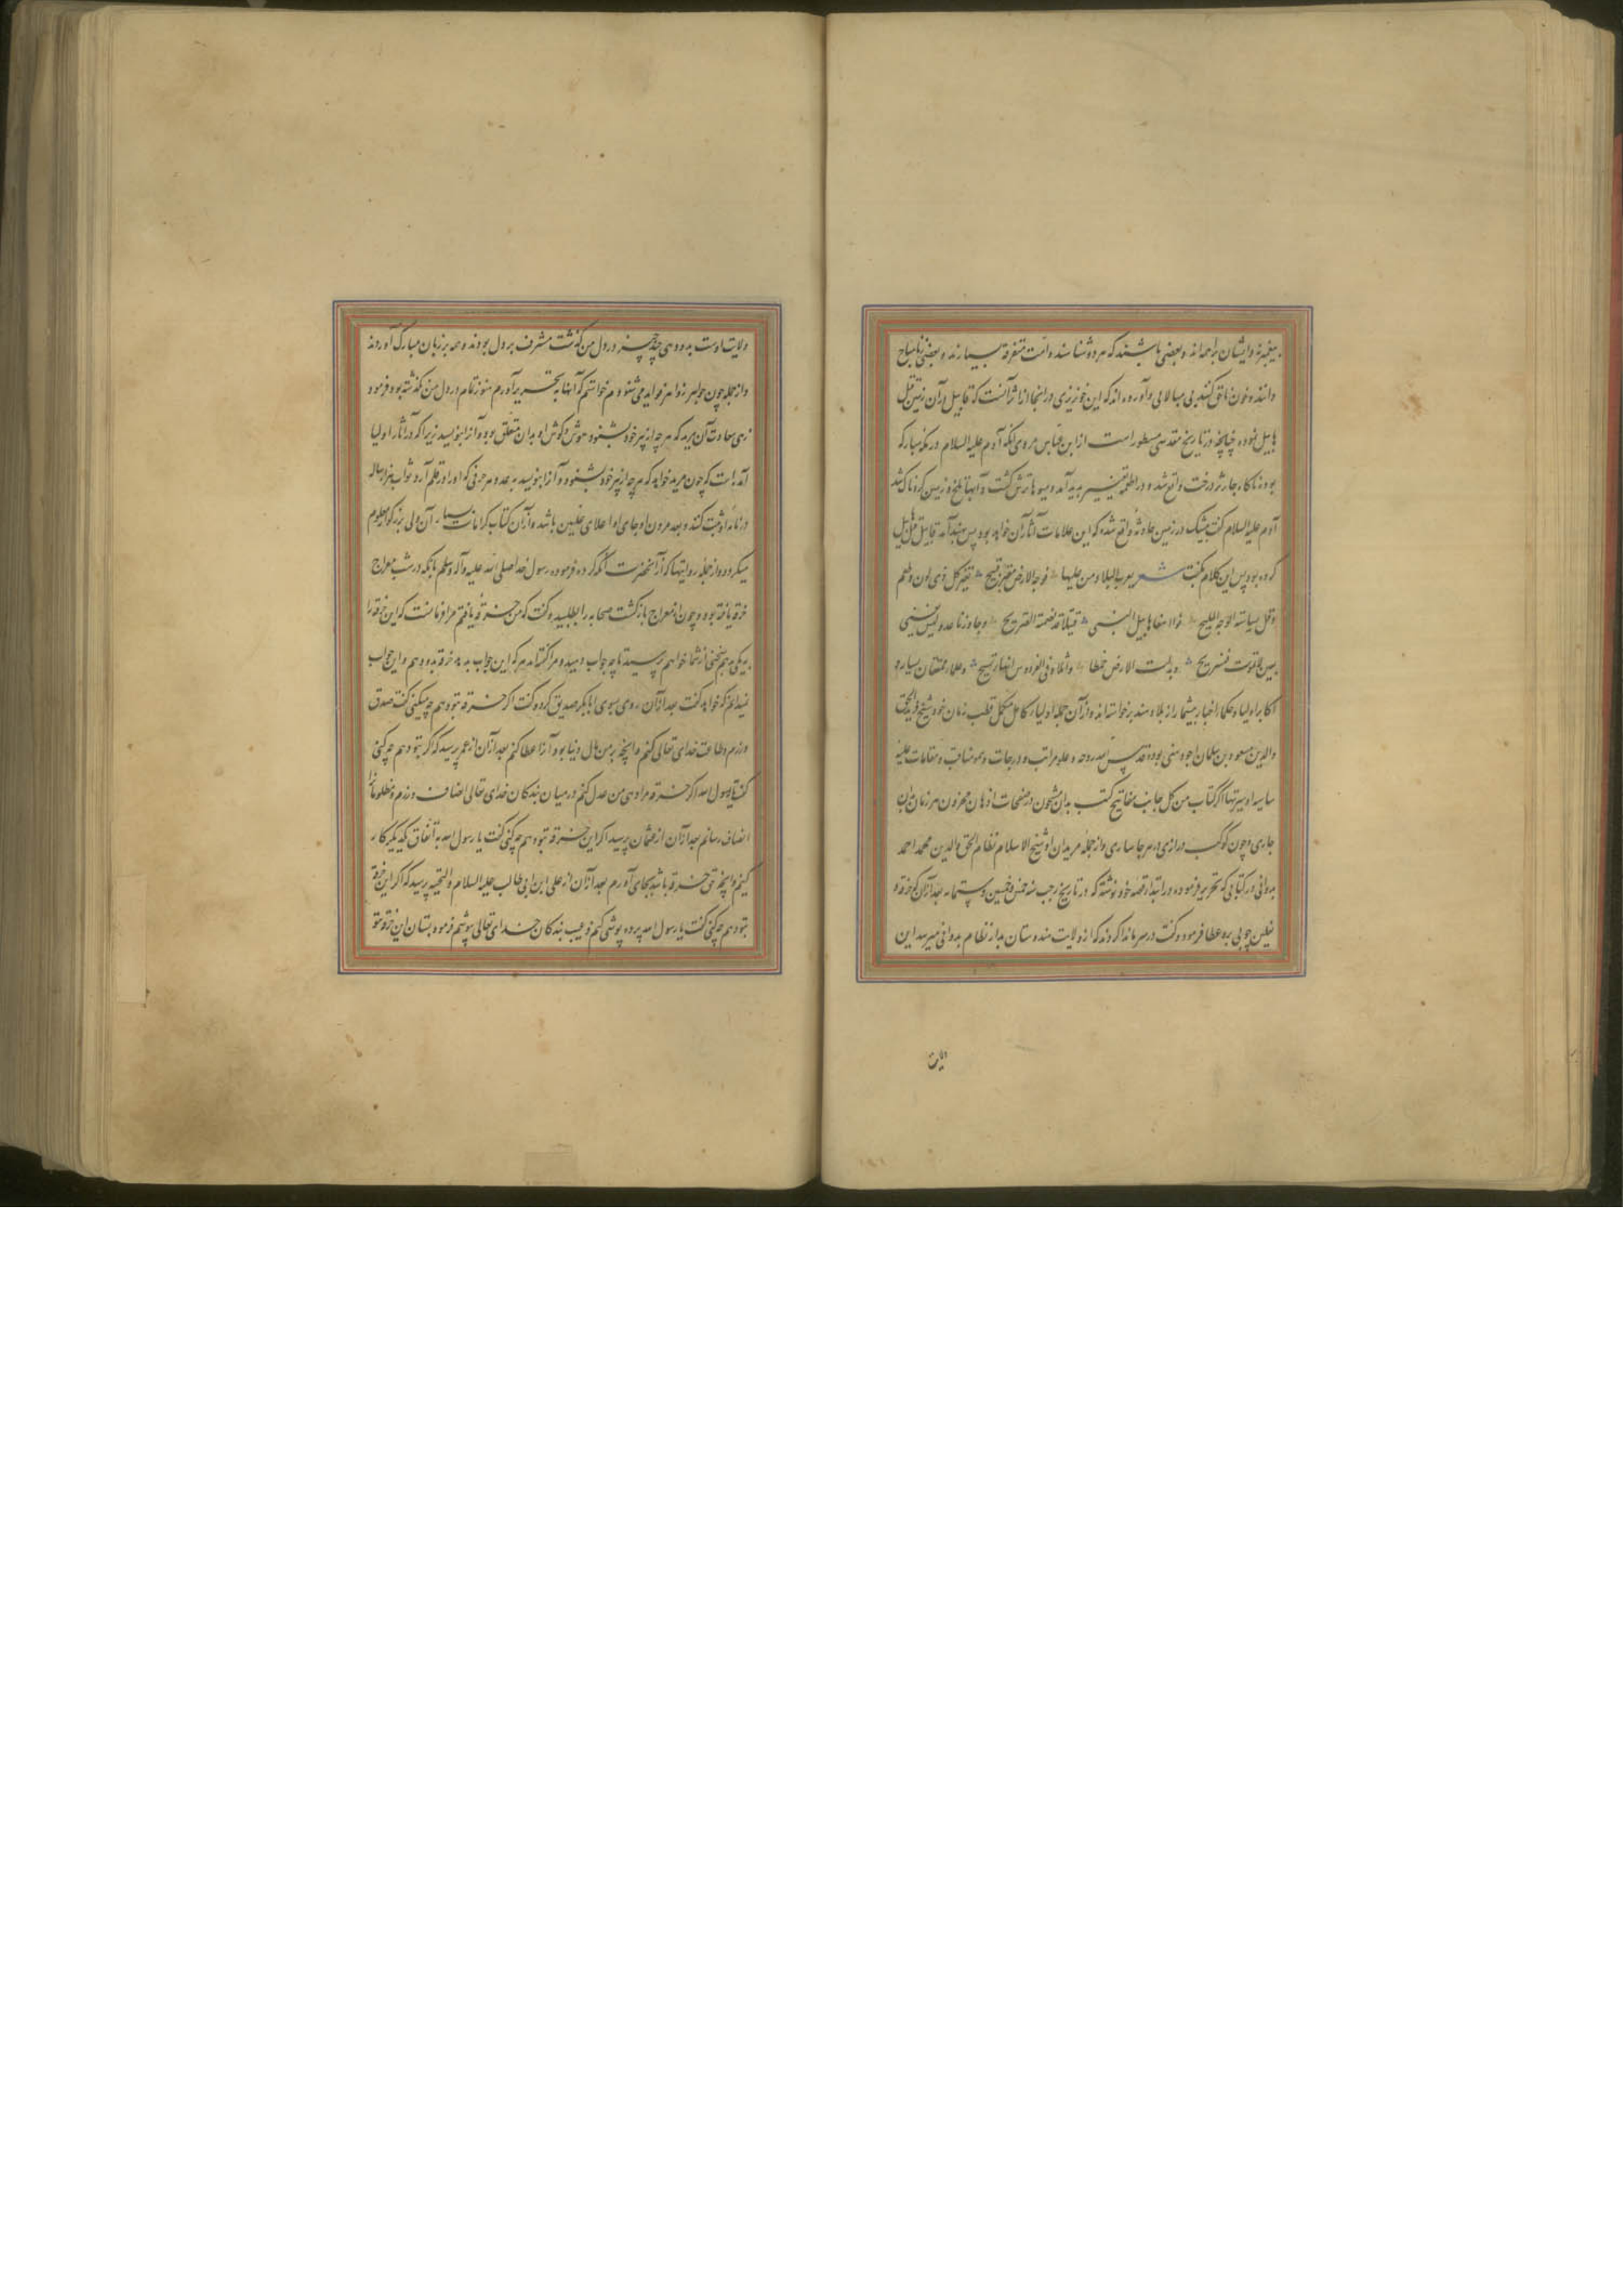 پیغمبرند و ایشان براهمه‌اند و بعضی باشند که هر دو شناسند و امت متفرقه بسیارند و بعضی زنا مباح
دانند و خون ناحق کنند بی مبالاتی و آورده‌اند که این خونریزی در اینجا از اثر آنست که قابیل در آن زمین قتل
هابیل نموده چنانچه در تاریخ مقدسی مسطور است از ابن عباس مروی آنکه آدم علیه السلام در مکه مبارکه
بود ناگاه خار بر درخت واقع شد و در اطعمه تغییر پدید آمد و میوها ترش گشت و آبها تلخ و زمین گردناک شد
آدم علیه السلام گفت بیشک در زمین حادثه واقع شده که این علامات آثار آن خواهد بود پس بهند آمد قابیل قتل هابیل
کرده بود پس این کلام گفت شعر البلاد و من علیها فوجه الارض مغبر قبیح تغیر کل ذی لون و طعم
وقل بشاشة الوجه الملیح فوا اسفا هابیل ابنی قتیلا قد تضمنه الضریح و جاورنا عدو لیس یفنی
بدلت الارض خمطا و اثلا و فی الفردوس انهار تسیح و علما و محققان بسیار و
اکابر اولیا و حکما و اخیار بیشمار از بلاد هند برخواسته‌اند و از آن جمله اولیاء کامل مکمل قطب زمان خود شیخ فرید الحق
والدین مسعود بن سلیمان اجودهنی بوده قدس الله روحه و علو مراتب و درجات و سمو مناقب و مقامات علیه
سامیه او سیرتها اگر کتاب من کل جانب مفاتیح کتب بدان مشحون و صفحات اذهان مخزون هر زمان بران
جاری و چون کوکب دراری در هر جا ساری و از جمله مریدان او شیخ الاسلام نظام الحق والدین محمد احمد
بدوانی در کتابی که تحریر فرموده در ابتداء قصه خود نوشته که در تاریخ رجب سنه خمس و خمسین و ستمایه بعد از آن که خرقه و
نعلین چوبی بره عطا فرمود و گفت در سر ما ندا کردند که از ولایت هندوستان مدار نظام بدوانی میرسد این
ولایت اوست بدو دهی چند چیز در دل من گذشت مشرف بر دل بودند و همه بر زبان مبارک آوردند
و از جمله چون جواهر زواهر فواید می شنودم خواستم که آنها بتحریر آورم هنوز تمام در دل من نگذشته بود فرمود
زهی سعادت آن مرید که هر چه از پیر خود بشنود هوش و گوش او بدان متعلق بود و آنرا بنویسد زیرا که در آثار اولیا
آمده است که چون مرید خواهد که هر چه از پیر خود بشنود و آنرا بنویسد بعدد هر حرفی که او در قلم آرد ثواب هزار ساله
در نامه او ثبت کنند و بعد مردن او جای او اعلای علیین باشد و از آن کتاب کرامات بسیار آن ولی بزرگوار معلوم
میگردد و از جمله روایتها که از آنحضرت نقل کرده فرموده رسول خدا صلی الله علیه و آله و سلم با آنکه در شب معراج
خرقه یافته بود و چون از معراج بازگشت صحابه را بطلبید و گفت که من خرقه یافتم مرا فرمانست که این خرقه را
بیکی بدهم سخنی از شما خواهم پرسید تا چه جواب دهید و مرا گفته‌اند هر که این جواب بدهد خرقه بدو دهم و این جواب
نمیدانم که خواهد گفت بعد از آن روی بسوی ابابکر صدیق کرد و گفت اگر خرقه بتو دهم چه میکنی گفت صدق
ورزم و طاعت خدای تعالی کنم و آنچه بر من مال دنیا بود آنرا عطا کنم بعد از آن از عمر پرسید که اگر بتو دهم چه کنی
گفت یا رسول الله اگر خرقه مرا دهی من عدل کنم و در میان بندگان خدای تعالی انصاف ورزم و مظلومانرا
انصاف رسانم بعد از آن از عثمان پرسید اگر این خرقه بتو دهم چه کنی گفت یا رسول الله به اتفاق یکدیگر کار
کنم و آنچه حق خرقه باشد بجای آورم بعد از آن از علی ابن ابی طالب علیه السلام و التحیه پرسید که اگر این خرقه
بتو دهم چه کنی گفت یا رسول الله پرده پوشی کنم و عیب بندگان خدای تعالی بپوشم فرمود بستان این خرقه بتو